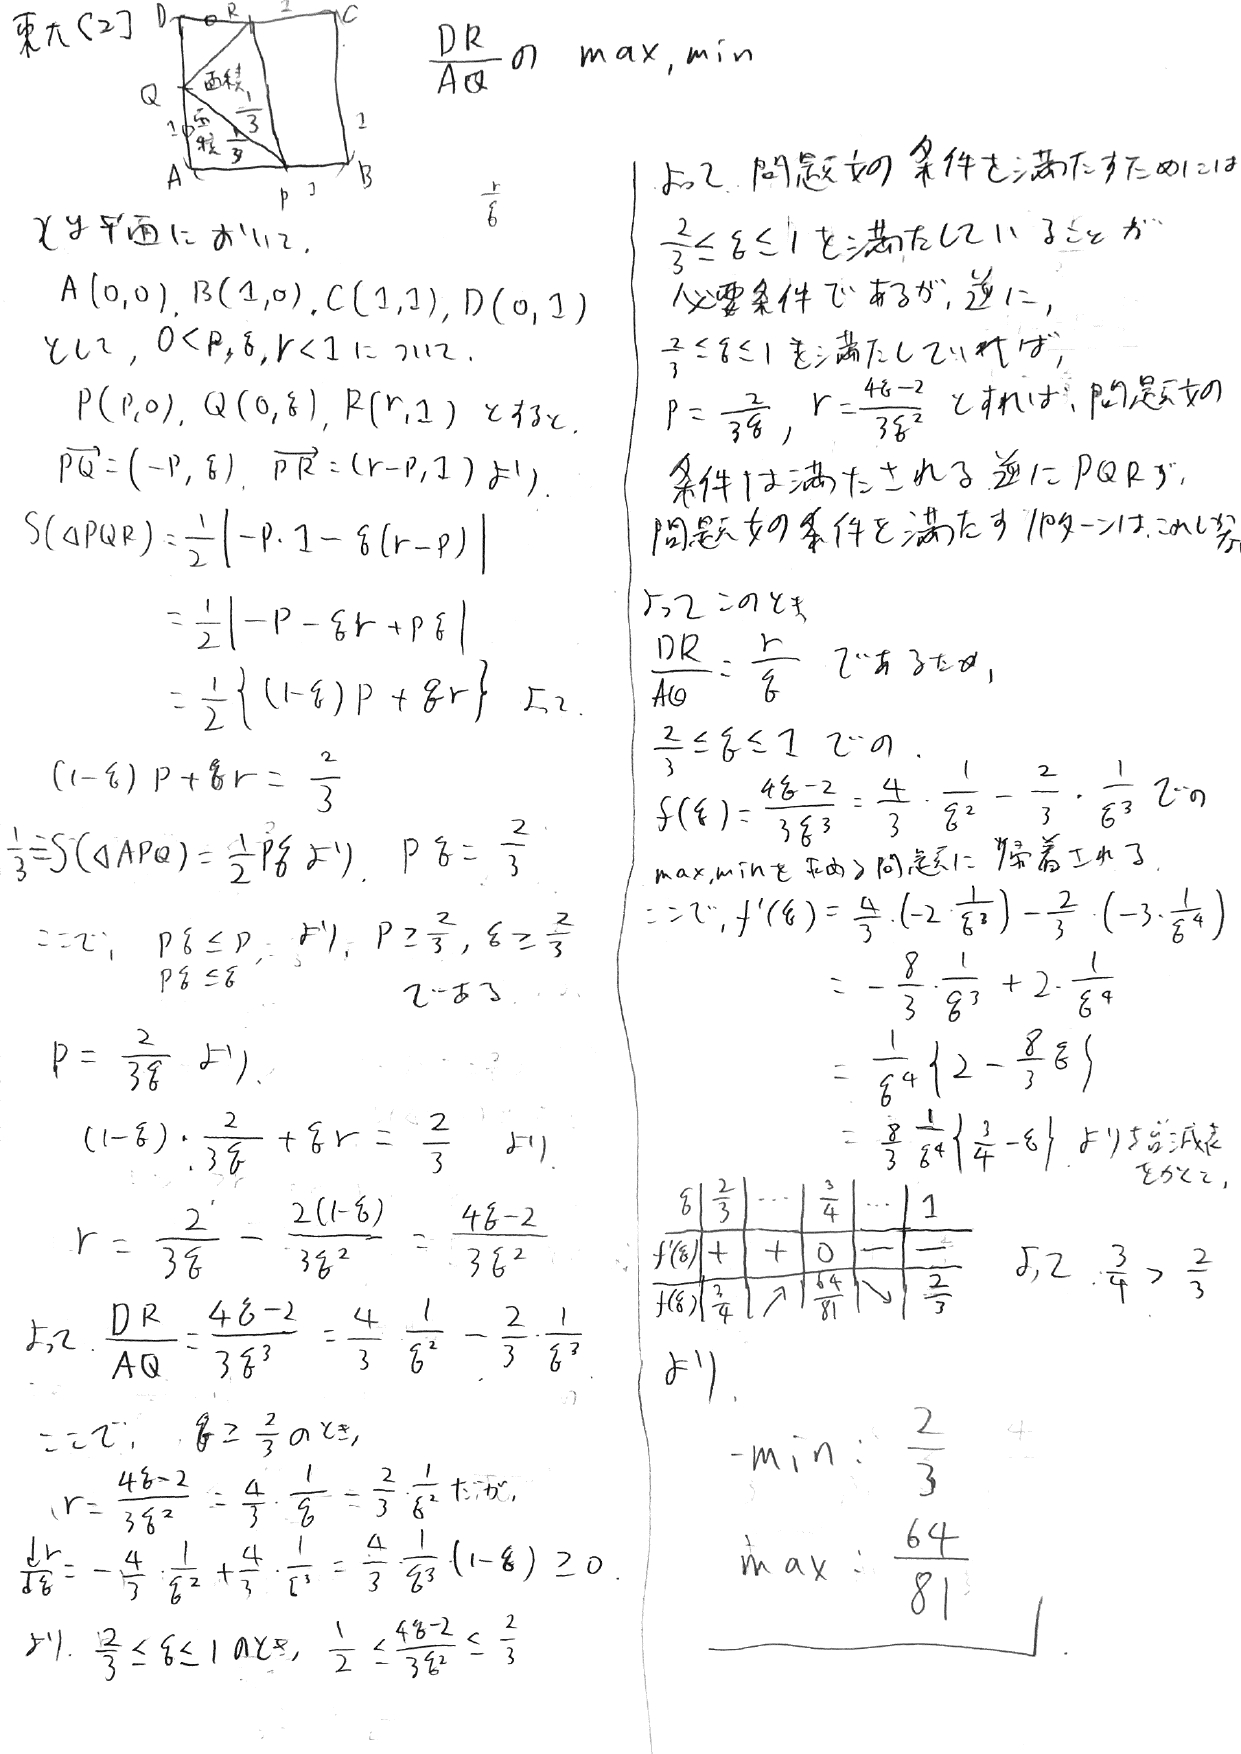 東大〔2〕
D R 1 C
Q 面積 1/3
1 面積 1/3 1
A P 1 B
DR/AQ の max, min
r/q
xy平面において、
A(0,0), B(1,0), C(1,1), D(0,1)
として, 0<p,q,r<1について.
P(p,0), Q(0,q), R(r,1) とすると,
PQ→=(-p, q), PR→=(r-p, 1) より,
S(△PQR)=1/2|-p・1-q(r-p)|
=1/2|-p-qr+pq|
=1/2{(1-q)p+qr} よって.
(1-q)p+qr=2/3
1/3=S(△APQ)=1/2pq より, pq=2/3
ここで, pq≤p, pq≤q より, p≥2/3, q≥2/3
である
p=2/3q より,
(1-q)・2/3q+qr=2/3 より
r=2/3q-2(1-q)/3q²=4q-2/3q²
よって. DR/AQ=4q-2/3q³=4/3・1/q²-2/3・1/q³
ここで, q≥2/3のとき,
r=4q-2/3q²=4/3・1/q=2/3・1/q² だが,
dr/dq=-4/3・1/q²+4/3・1/q³=4/3・1/q³(1-q)≥0.
より. 2/3≤q≤1のとき, 1/2≤4q-2/3q²≤2/3
よって 問題文の条件を満たすためには
2/3≤q≤1を満たしていることが
必要条件であるが, 逆に,
2/3≤q≤1を満たしていれば,
p=2/3q, r=4q-2/3q² とすれば, 問題文の
条件は満たされる 逆にPQRが,
問題文の条件を満たすパターンは、これしか
よってこのとき
DR/AQ=r/q であるため,
2/3≤q≤1 での.
f(q)=4q-2/3q³=4/3・1/q²-2/3・1/q³ での
max,minを求める問題に帰着される.
ここで, f'(q)=4/3・(-2・1/q³)-2/3・(-3・1/q⁴)
=-8/3・1/q³+2・1/q⁴
=1/q⁴{2-8/3q}
=8/3 1/q⁴{3/4-q} より増減表
をかくと,
q 2/3 … 3/4 … 1
f'(q) + + 0 − −
f(q) 3/4 ↗ 64/81 ↘ 2/3
よって. 3/4>2/3
より.
min: 2/3
max: 64/81